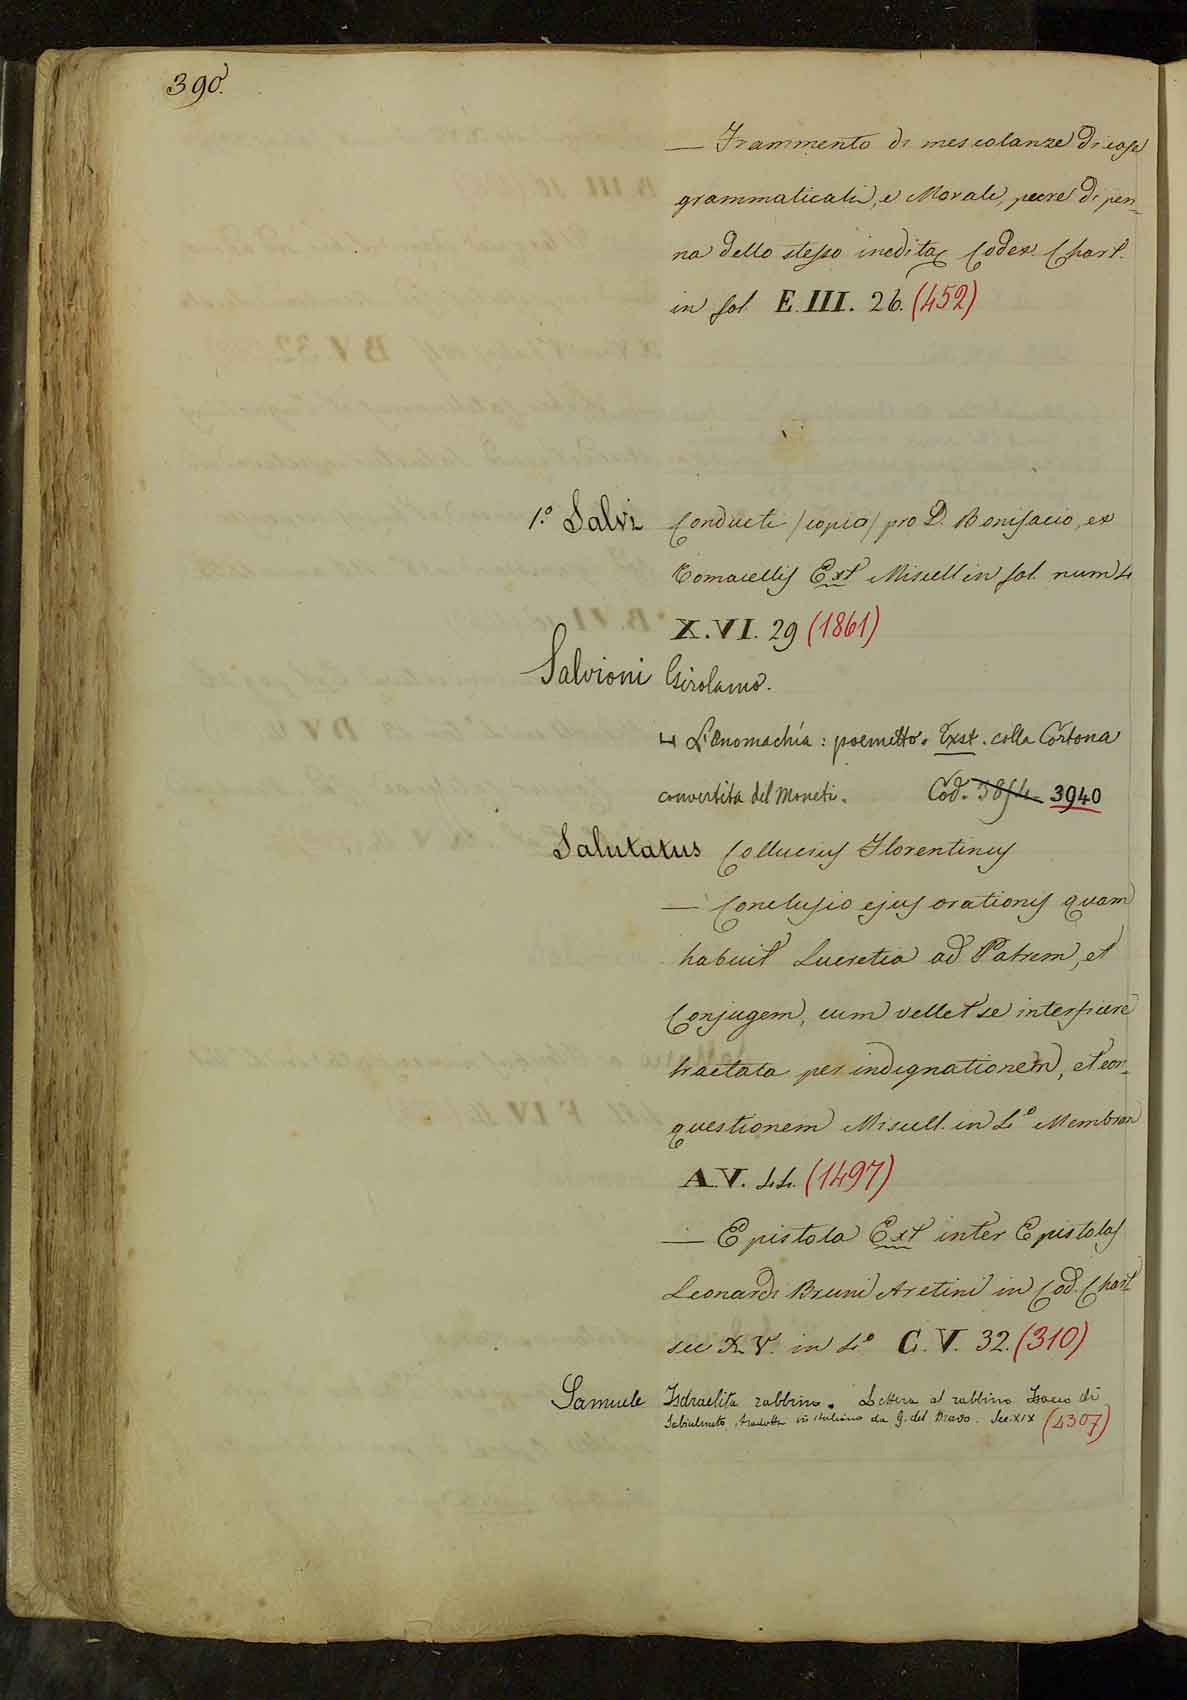 390.
— Frammento di mescolanze di cose
grammaticali, e Morali, pure di pen-
na dello stesso inedita Codex Chart.
in fol E. III. 26. (452)
1.º Salvi Conducti /copia/ pro D. Bonifacio, ex
Tomacellis Ext Miscell in fol. num 4
X. VI. 29 (1861)
Salvioni Girolamo.
L'Enomachia: poemetto. Exst. colla Cortona
convertita del Moneti. Cod. 3940
Salutatus Colluccius Florentinus
— Conclusio ejus orationis quam
habuit Lucretia ad Patrem, et
Conjugem, cum vellet se interficere
tractata per indignationem, et con-
questionem Miscell. in 4º Membran
A. V. 44. (1497)
— Epistola Ext inter Epistolas
Leonardi Bruni Aretini in Cod. Chart
sec XV. in 4º C. V. 32. (310)
Samuele Isdraelita rabbino. Lettera al rabbino Isacco di
tradotta in italiano da G. del Bravo. Sec. XIX (4307)